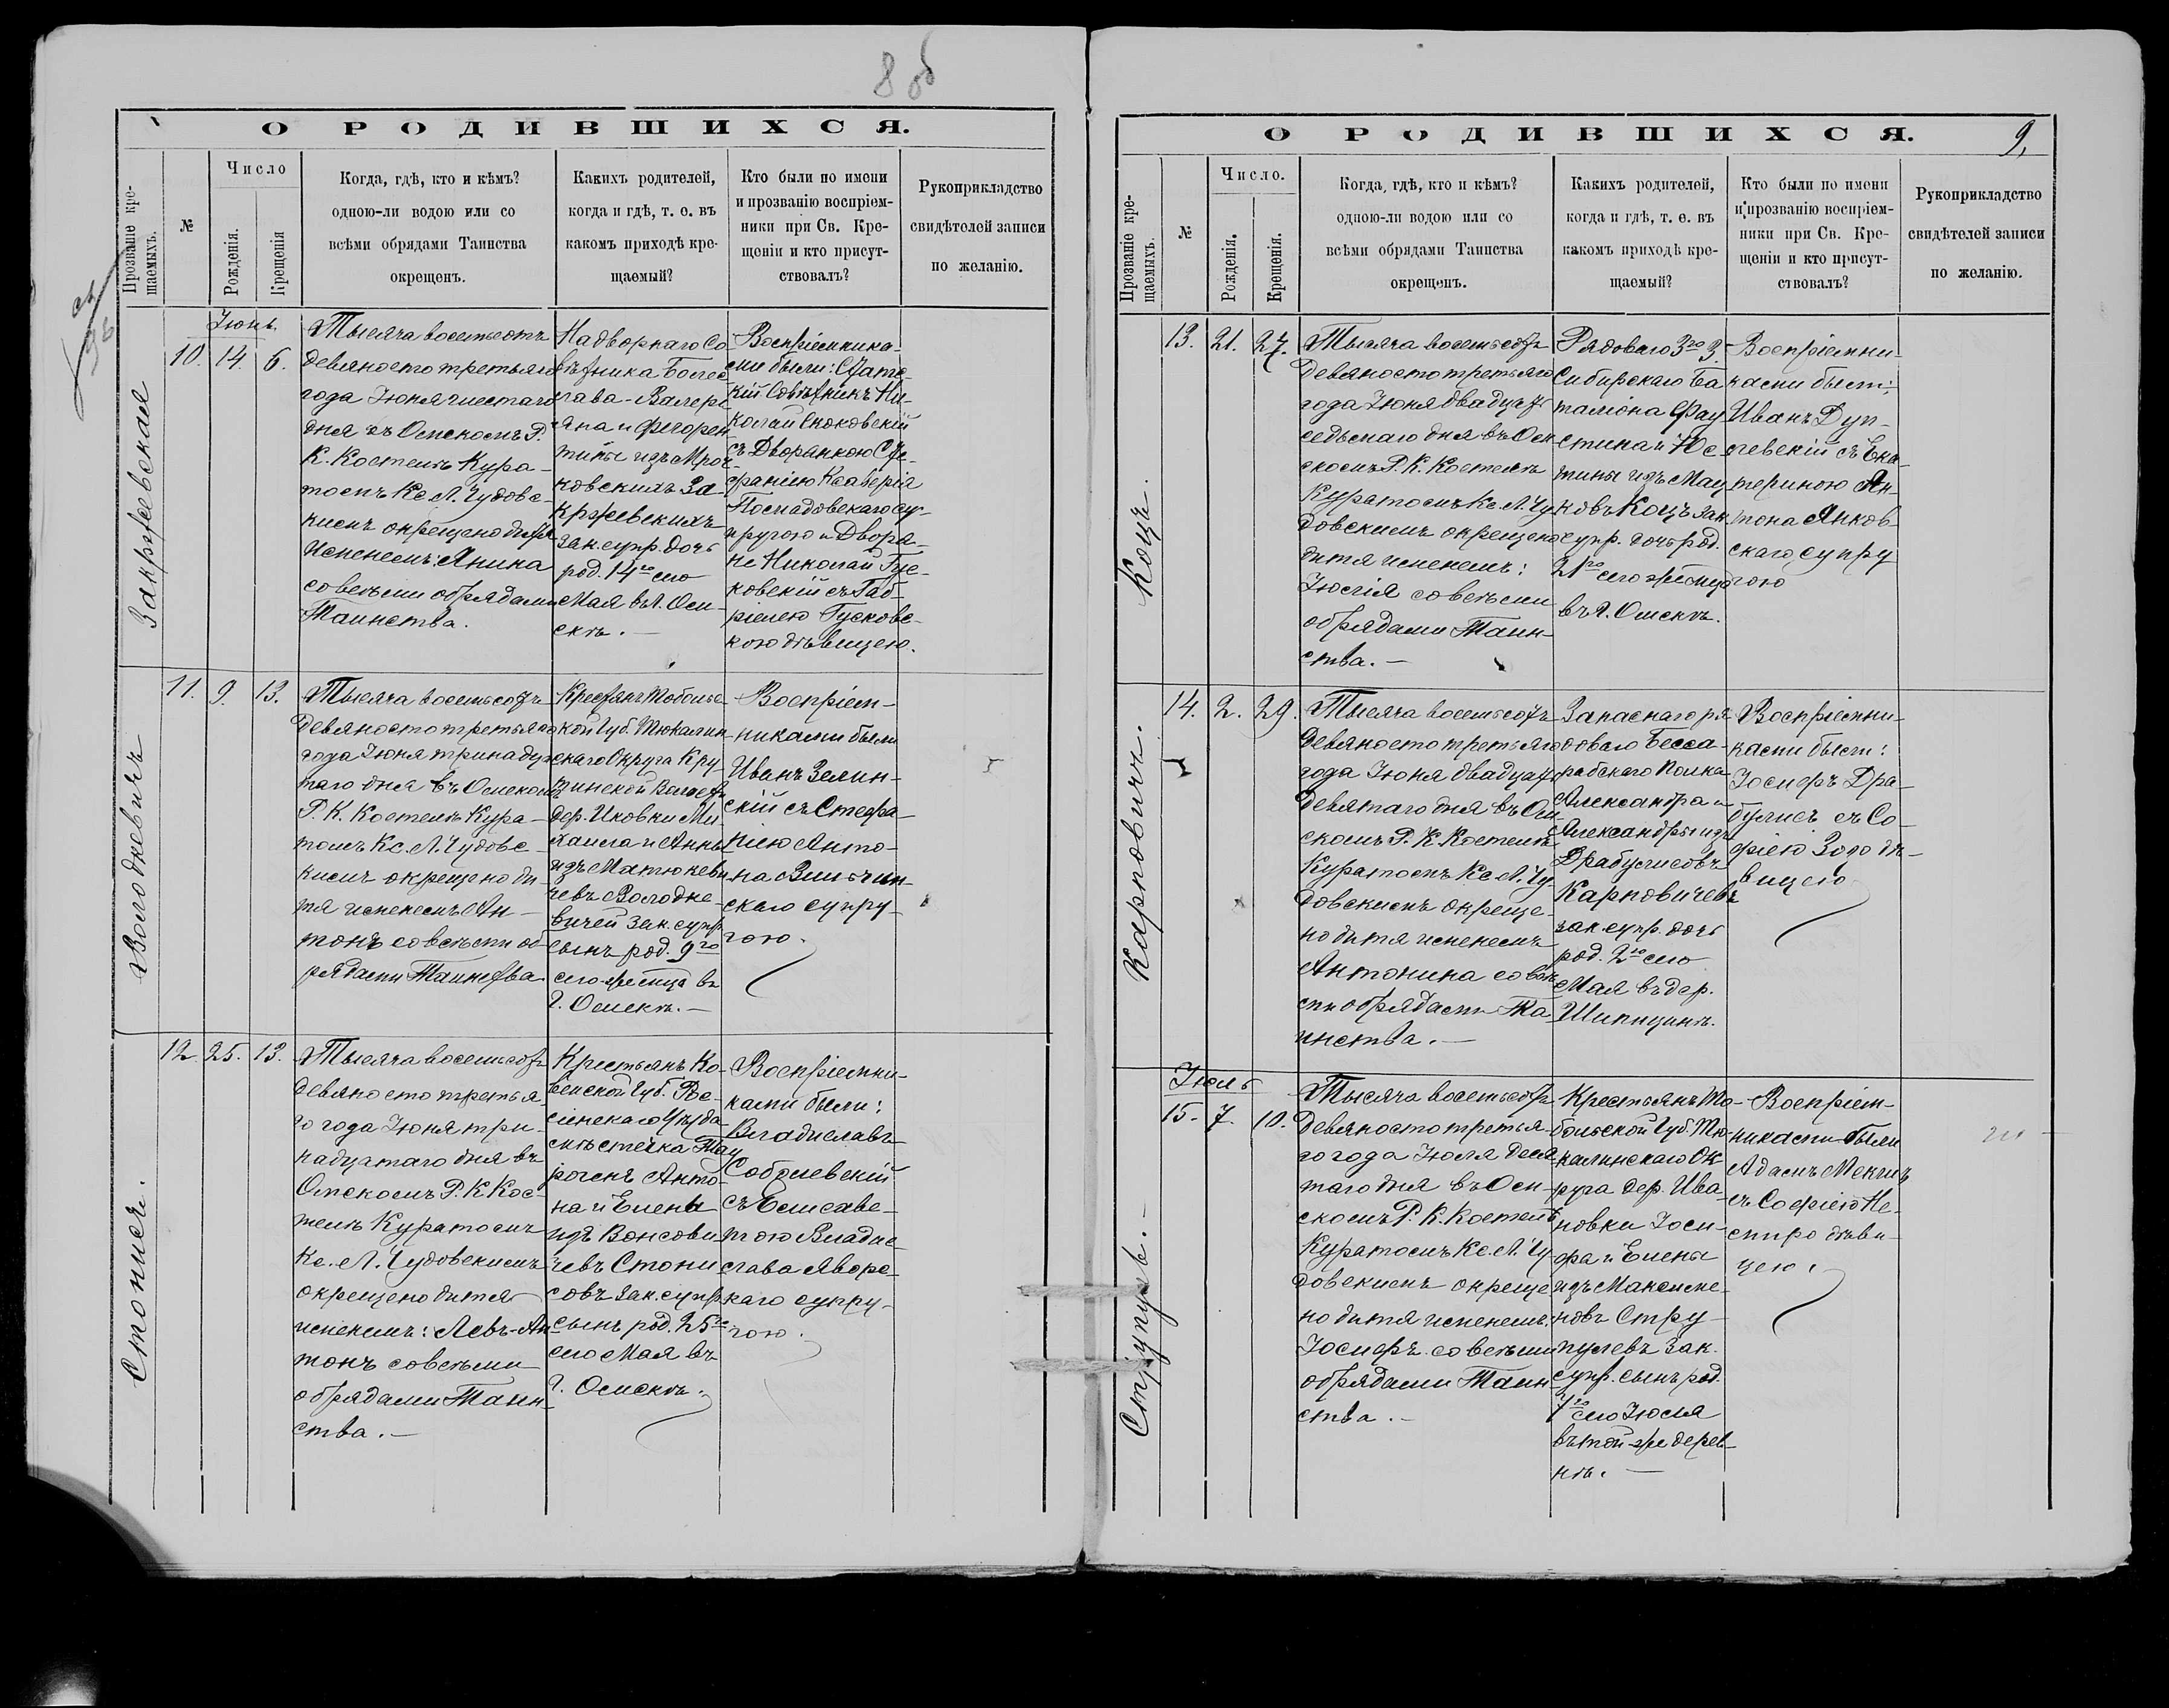 8 об
О РОДИВШИХСЯ.
Прозваніе крещаемыхъ.
№
Число
Рожденія.
Крещенія
Когда, гдѣ, кто и кѣмъ?
одною-ли водою или со
всѣми обрядами Таинства
окрещенъ.
Какихъ родителей,
когда и гдѣ, т. е. въ
какомъ приходѣ кре-
щаемый?
Кто были по имени
и прозванію воспріем-
ники при Св. Кре-
щеніи и кто присут-
ствовалъ?
Рукоприкладство
свидѣтелей записи
по желанію.
Закржевская
Іюнь.
10. 14. 6.
Тысяча восемьсотъ
девяносто третьяго
года Іюня шестаго
дня въ Омскомъ Р.
К. Костелѣ Кура-
томъ Кс. Л. Чудовс-
кимъ окрещено дитя
именемъ: Янина
со всѣми обрядами
Таинства.
Надворнаго Со-
вѣтника Болес-
лава-Валері-
яна и Флорен-
тины изъ Мроч-
ковскихъ За-
кржевскихъ
зак. супр. дочь
род. 14го сего
Мая въ г. Ом-
скѣ.
Воспріемника-
ми были: Статс-
кій Совѣтникъ Ни-
колай Сноковскій
съ Дворянкою Сте-
фаніею Ксаверія
Посладовскаго су-
пругою и Дворя-
не Николай Гус-
ковскій съ Габ-
ріелею Гусковс-
кою дѣвицею.
Володкевичъ
11. 9. 13.
Тысяча восемьсотъ
девяносто третьяго
года Іюня тринадца-
таго дня въ Омскомъ
Р. К. Костелѣ Кура-
томъ Кс. Л. Чудовс-
кимъ окрещено ди-
тя именемъ Ан-
тонъ со всѣми об-
рядами Таинства
Крестьянъ Тобольс-
кой Губ. Тюкалин-
скаго Округа Кру-
тинской Волости
дер. Иковки Ми-
хаила и Анны
изъ Матюкеви-
чевъ Володке-
вичей зак. супр.
сынъ род. 9го
сего мѣсяца въ
г. Омскѣ.
Воспріем-
никами были
Иванъ Зелин-
скій съ Стефа-
ніею Анто-
на Вильчин-
скаго супру-
гою.
Стонисъ.
12. 25. 13.
Тысяча восемьсотъ
девяносто третья-
го года Іюня три-
надцатаго дня въ
Омскомъ Р. К. Кос-
телѣ Куратомъ
Кс. Л. Чудовскимъ
окрещено дитя
именемъ: Левъ-Ан-
тонъ со всѣми
обрядами Таин-
ства.
Крестьянъ Ко-
венской Губ. Рос-
сіенскаго Уѣзда
мѣстечка Тау-
рогенъ Анто-
на и Елены
изъ Вонсови-
чевъ Стони-
совъ зак. супр.
сынъ род. 25го
сего Мая въ
г. Омскѣ.
Воспріемни-
ками были:
Владиславъ
Соболевскій
съ Елисаве-
тою Владис-
лава Яворс-
каго супру-
гою.
9.
О РОДИВШИХСЯ.
Прозваніе крещаемыхъ.
№
Число.
Рожденія.
Крещенія.
Когда, гдѣ, кто и кѣмъ?
одною-ли водою или со
всѣми обрядами Таинства
окрещенъ.
Какихъ родителей,
когда и гдѣ, т. е. въ
какомъ приходѣ кре-
щаемый?
Кто были по имени
и прозванію воспріем-
ники при Св. Кре-
щеніи и кто присут-
ствовалъ?
Рукоприкладство
свидѣтелей записи
по желанію.
Коцъ.
13. 21. 27.
Тысяча восемьсотъ
девяносто третьяго
года Іюня двадцать
седьмаго дня въ Ом-
скомъ Р. К. Костелѣ
Куратомъ Кс. Л. Чу-
довскимъ окрещено
дитя именемъ:
Юлія со всѣми
обрядами Таин-
ства.
Рядоваго 3го З.
Сибирскаго Ба-
таліона Фау-
стина и Юс-
тины изъ Мац-
ковъ Коцъ зак.
супр. дочь род.
21го сего мѣсяца
въ г. Омскѣ.
Воспріемни-
ками были:
Иванъ Дуп-
левскій съ Ека-
териною Ан-
тона Янков-
скаго супру
гою
Карповичъ.
14. 2. 29.
Тысяча восемьсотъ
девяносто третьяго
года Іюня двадцать
девятаго дня въ Ом-
скомъ Р. К. Костелѣ
Куратомъ Кс. Л. Чу-
довскимъ окреще-
но дитя именемъ
Антонина со всѣ-
ми обрядами Та-
инства.
Запаснаго ря-
доваго Бесса-
рабскаго Полка
Александра и
Александры изъ
Драбулисовъ
Карповичевъ
зак. супр. дочь
род. 2го сего
Мая въ дер.
Шипицинѣ.
Воспріемни-
ками были:
Іосифъ Дра-
булисъ съ Со-
фіею Зого дѣ-
вицею
Струпуль.
Іюль
15. 7. 10.
Тысяча восемьсотъ
девяносто третья-
го года Іюля деся-
таго дня въ Ом-
скомъ Р. К. Костелѣ
Куратомъ Кс. Л. Чу-
довскимъ окреще-
но дитя именемъ:
Іосифъ со всѣми
обрядами Таин-
ства.
Крестьянъ То-
больской Губ. Тю-
калинскаго Ок-
руга дер. Ива-
новки Іоси-
фа и Елены
изъ Максиме-
новъ Стру-
пулевъ зак.
супр. сынъ род.
7го сего Іюля
въ той-же дерев-
нѣ.
Воспріем-
никами были
Адамъ Менчикъ
съ Софіею Не-
спиро дѣви-
цею.